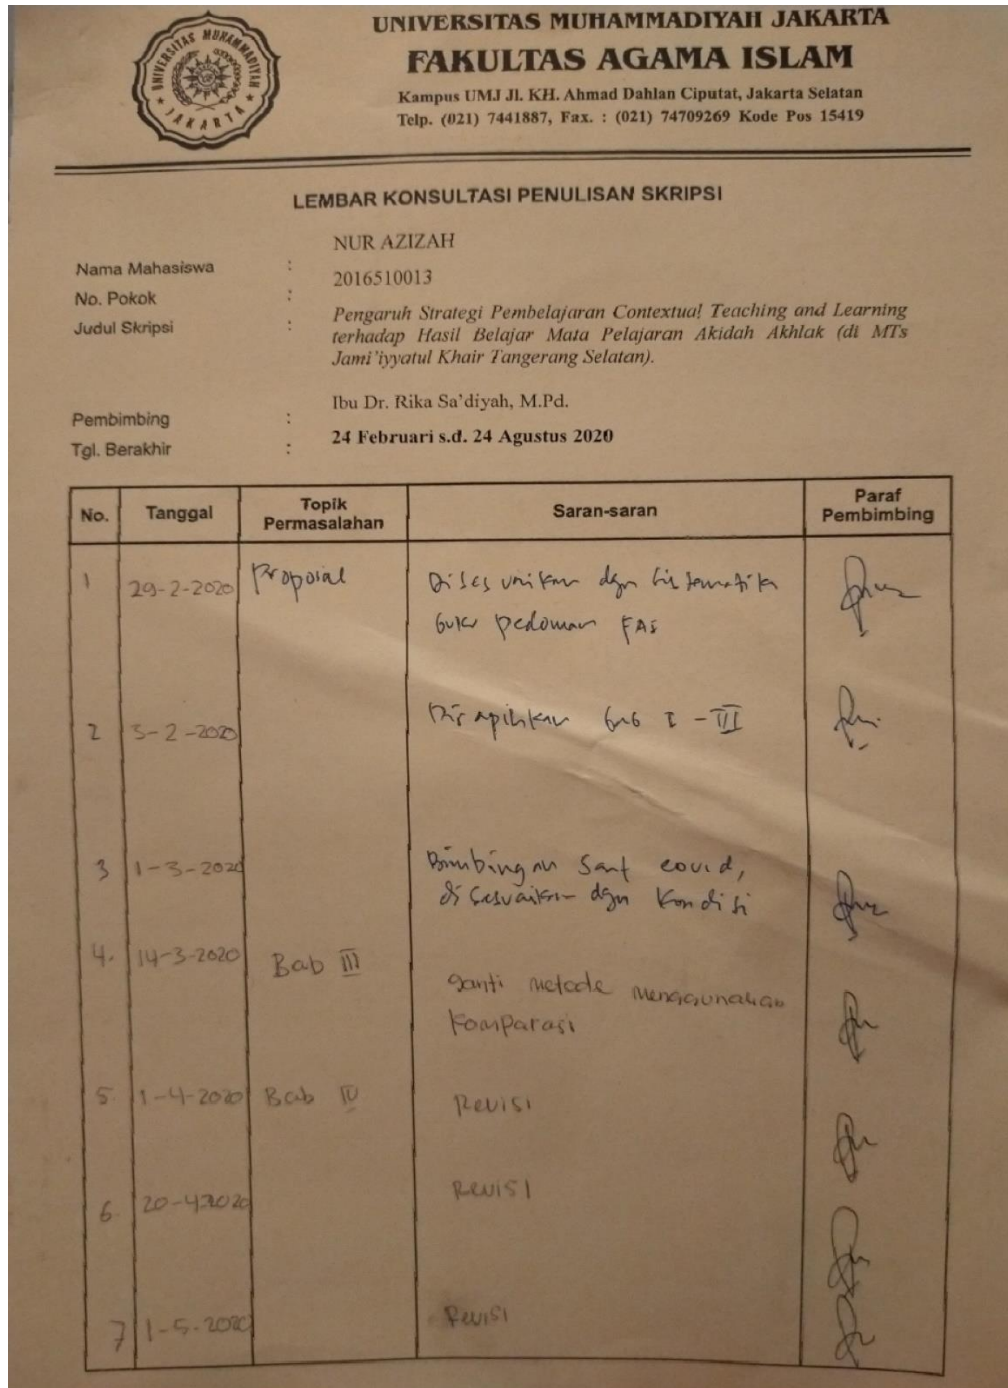 UNIVERSITAS MUHAMMADIYAH JAKARTA
FAKULTAS AGAMA ISLAM
Kampus UMJ Jl. KH. Ahmad Dahlan Ciputat, Jakarta Selatan
Telp. (021) 7441887, Fax. : (021) 74709269 Kode Pos 15419
UNIVERSITAS MUHAMMADIYAH
JAKARTA
LEMBAR KONSULTASI PENULISAN SKRIPSI
NUR AZIZAH
Nama Mahasiswa :
2016510013
No. Pokok :
Judul Skripsi : Pengaruh Strategi Pembelajaran Contextual Teaching and Learning
terhadap Hasil Belajar Mata Pelajaran Akidah Akhlak (di MTs
Jami'iyyatul Khair Tangerang Selatan).
Ibu Dr. Rika Sa'diyah, M.Pd.
Pembimbing :
24 Februari s.d. 24 Agustus 2020
Tgl. Berakhir :
No. Tanggal Topik Permasalahan Saran-saran Paraf Pembimbing
1 29-2-2020 Proposal Disesuaikan dgn sistematika
buku pedoman FAI
2 5-2-2020 Dirapihkan bab I - III
3 1-3-2020 Bimbingan saat covid,
disesuaikan dgn kondisi
4. 14-3-2020 Bab III ganti metode menggunakan
komparasi
5. 1-4-2020 Bab IV Revisi
6. 20-4-2020 Revisi
7 1-5-2020 Revisi